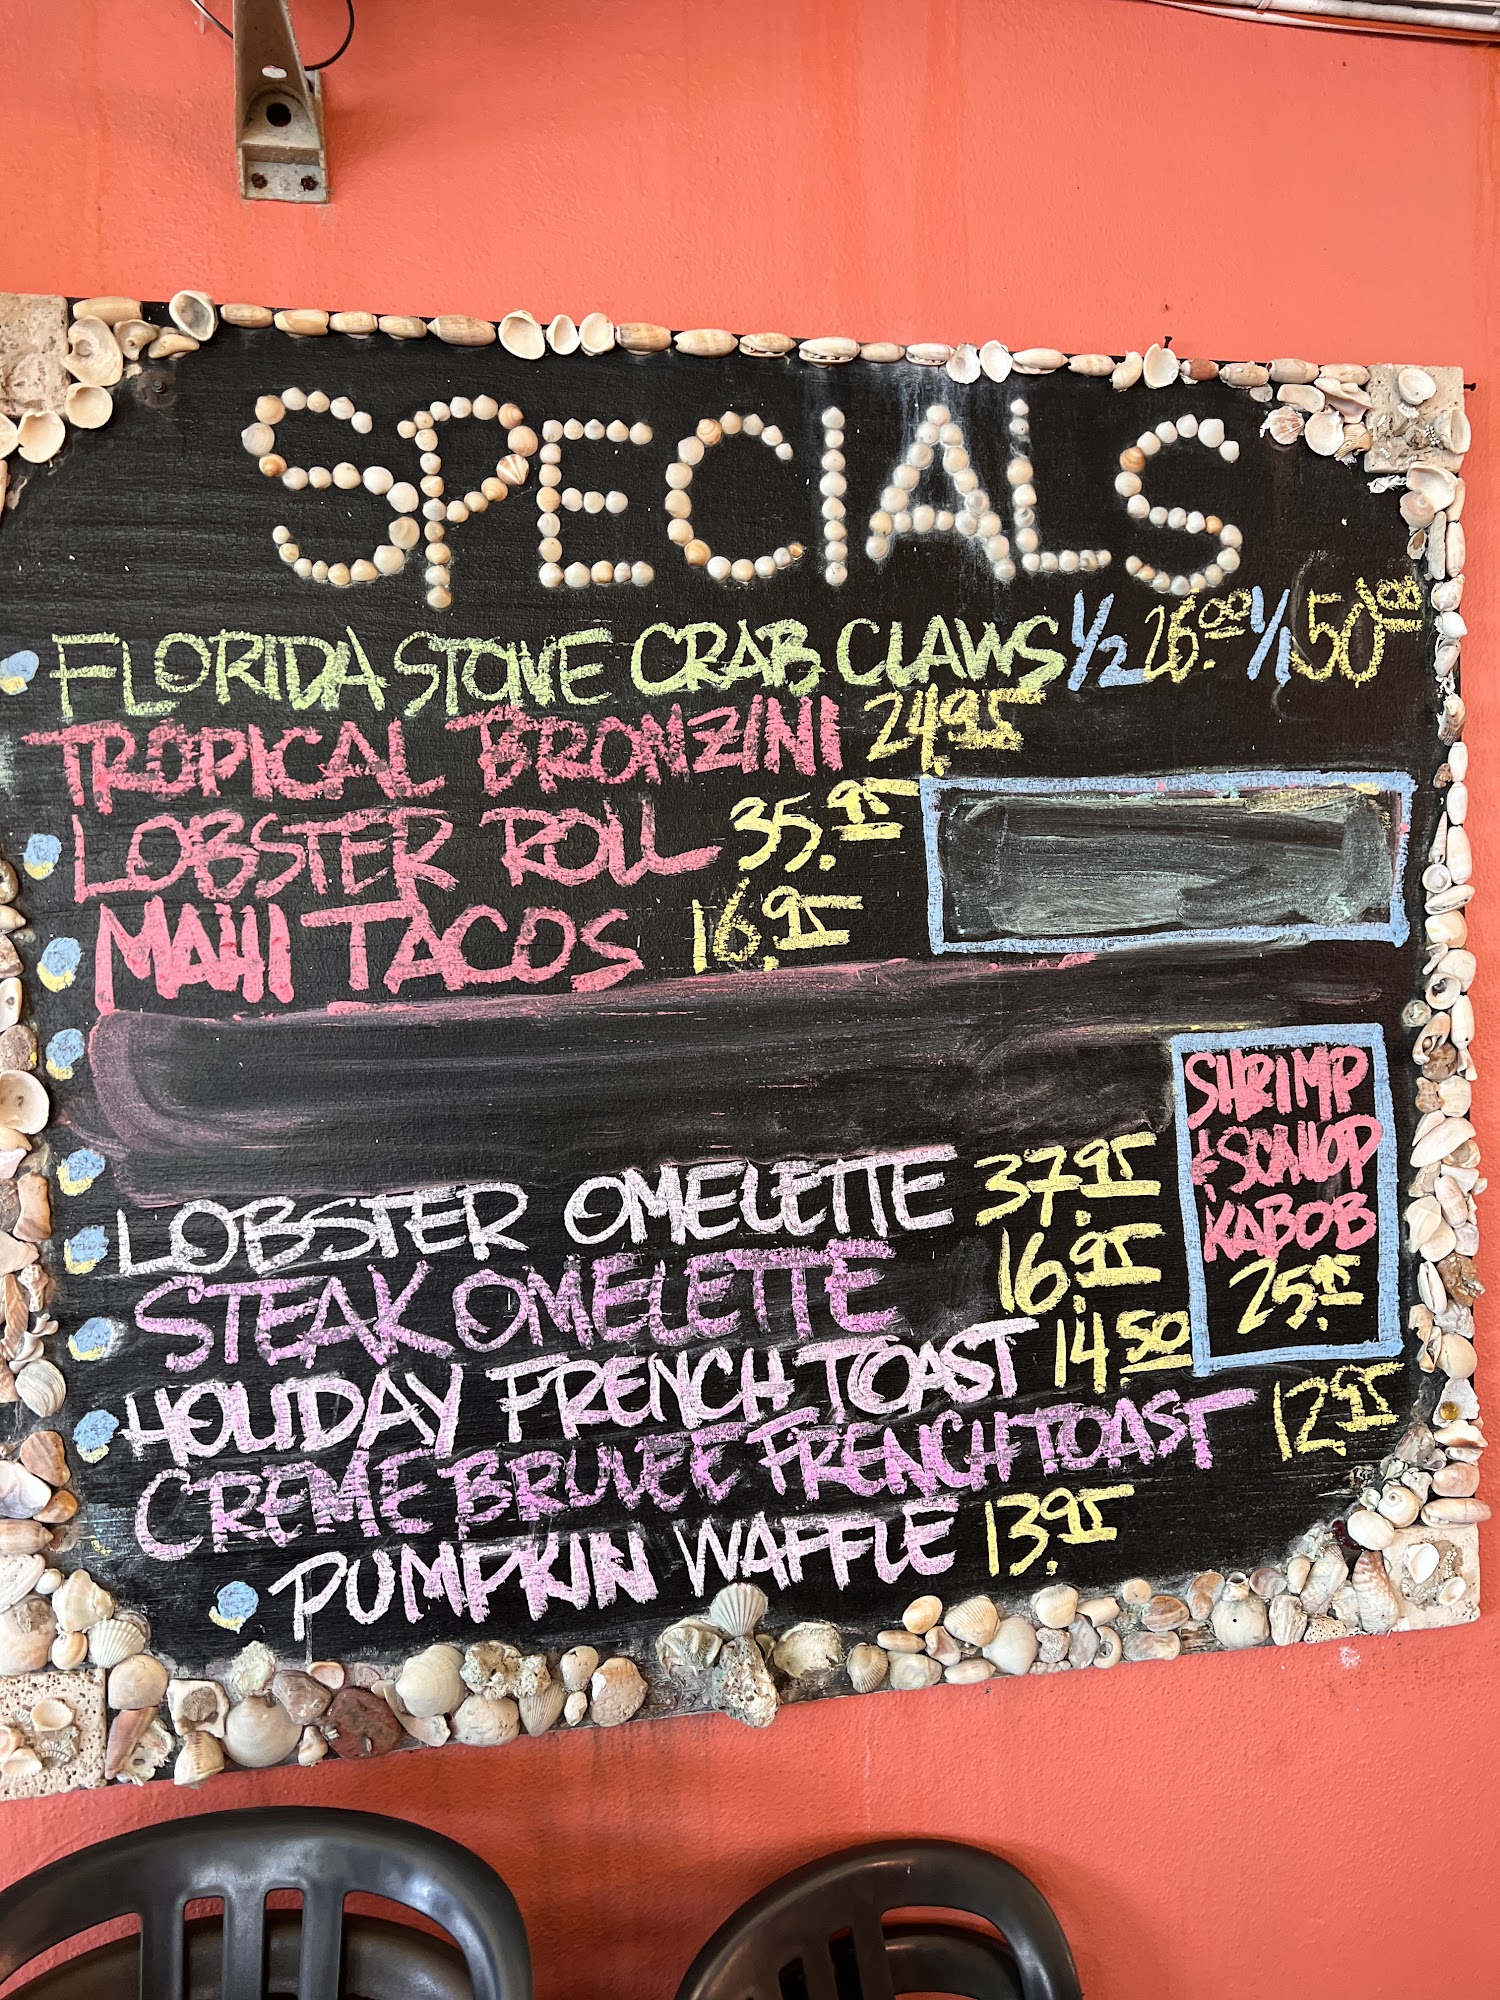 SPECIALS
FLORIDA STONE CRAB CLAWS 1/2 26.00 1/1 50.00
TROPICAL BRONZINI 24.95
LOBSTER ROLL 35.95
MAHI TACOS 16.95
LOBSTER OMELETTE 37.95
STEAK OMELETTE 16.95
HOLIDAY FRENCH TOAST 14.50
CREME BRULEE FRENCH TOAST 12.95
PUMPKIN WAFFLE 13.95
SHRIMP
& SCALLOP
KABOB
25.95